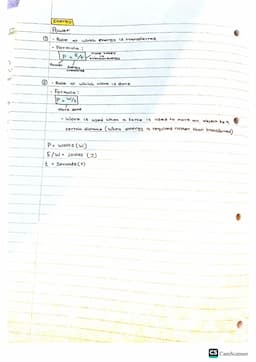 Energy
Power
① - Rate at which energy is transferred
- Formula:
P = E/t
Power
energy transferred
② - Rate at which work is done
- Formula:
P = W/t
work done
- Work is used when a force is used to move an object by a
certain distance (When energy is required rather than transferred)
P = watts (W)
E/W = Joules (J)
t = seconds (s)
CS CamScanner